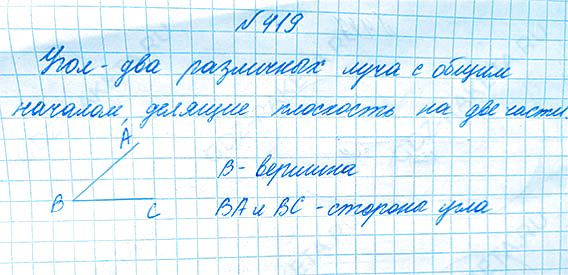 №419
Угол - два различных луча с общим
началом, делящие плоскость на две части.
A
B - вершина
B
C
BA и BC - сторона угла